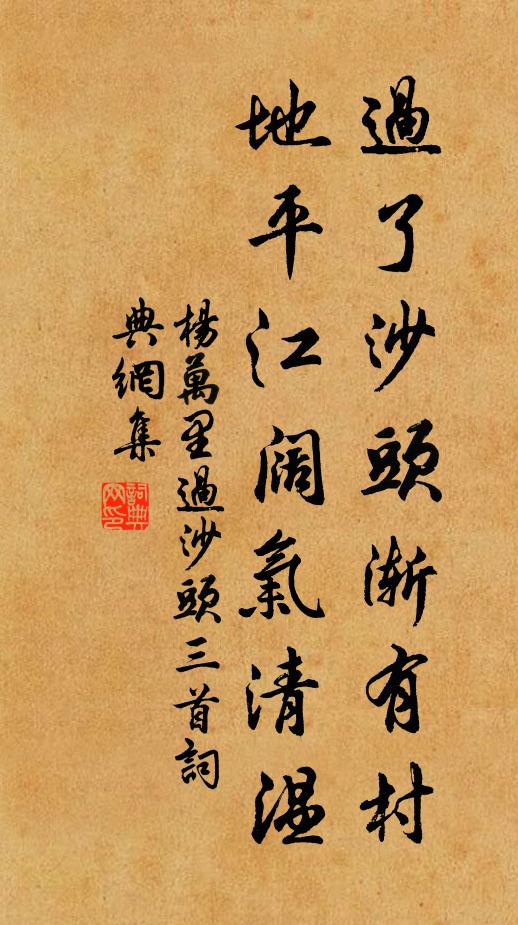 過了沙頭漸有村
地平江闊氣清温
楊萬里過沙頭三首詞
典網集
詞典網印